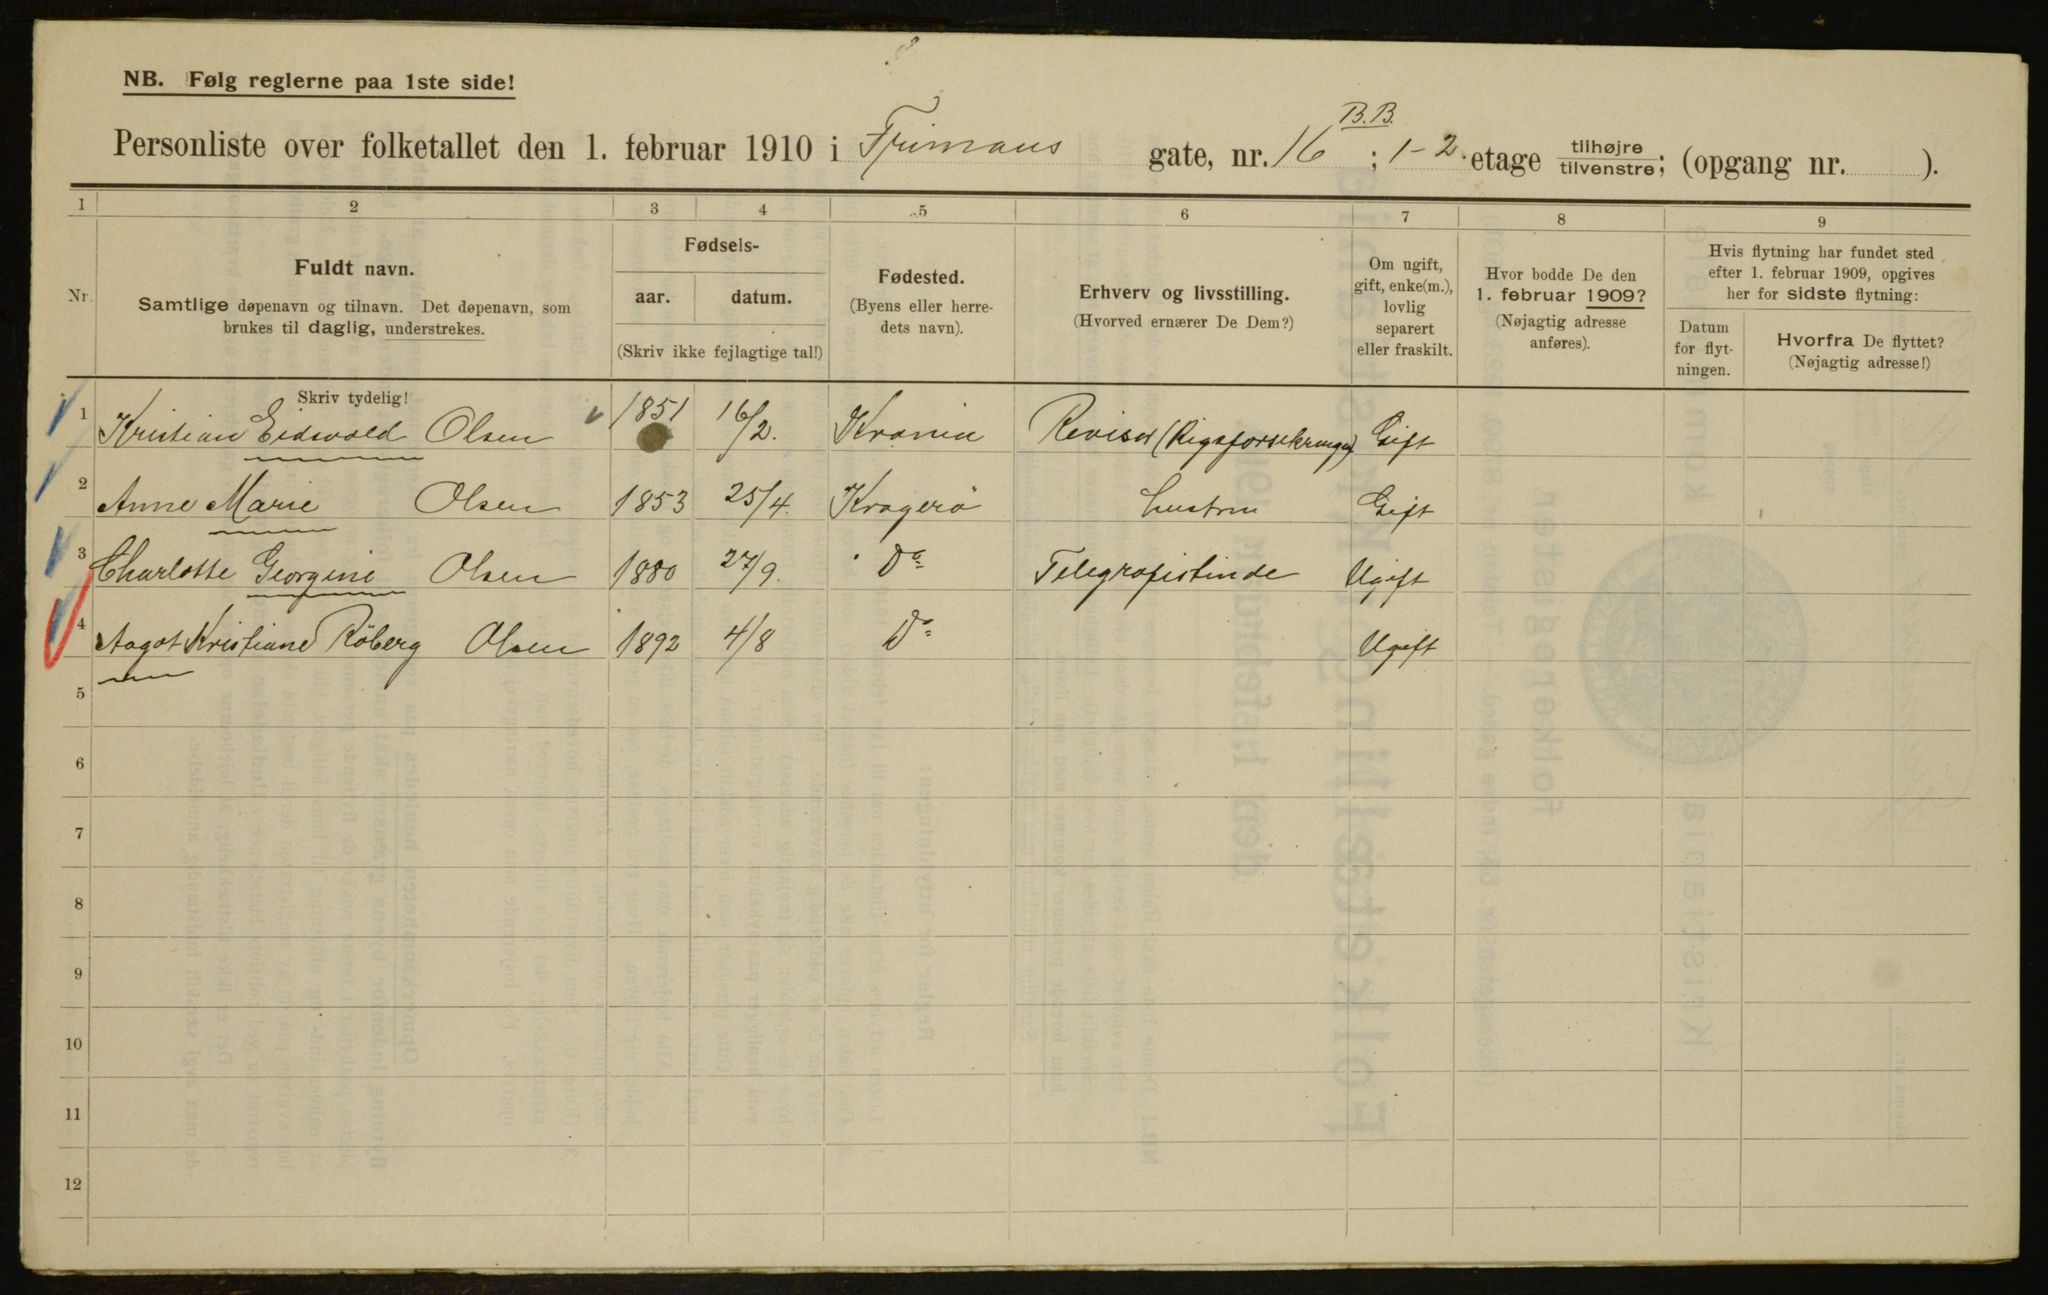 NB. Følg reglerne paa 1ste side!
B.B.
Personliste over folketallet den 1. februar 1910 i Frimans gate, nr. 16 ; 1-2. etage tilhøjre tilvenstre; (opgang nr. ).
1 2 3 4 5 6 7 8 9
Nr.
Fuldt navn.
Samtlige døpenavn og tilnavn. Det døpenavn, som
brukes til daglig, understrekes.
Fødsels-
aar. datum.
(Skriv ikke fejlagtige tal!)
Fødested.
(Byens eller herre-
dets navn).
Erhverv og livsstilling.
(Hvorved ernærer De Dem?)
Om ugift,
gift, enke(m.),
lovlig
separert
eller fraskilt.
Hvor bodde De den
1. februar 1909?
(Nøjagtig adresse
anføres).
Hvis flytning har fundet sted
efter 1. februar 1909, opgives
her for sidste flytning:
Datum
for flyt-
ningen.
Hvorfra De flyttet?
(Nøjagtig adresse!)
Skriv tydelig!
1 Kristian Eidsvold Olsen 1851 16/2. Krania Revisor (Rigsforsikringen) Gift
2 Anne Marie Olsen 1853 25/4. Kragerö Hustru Gift
3 Charlotte Georgine Olsen 1880 27/9. Do Telegrafistinde Ugift
4 Aagot Kristiane Röberg Olsen 1892 4/8 Do Ugift
5
6
7
8
9
10
11
12